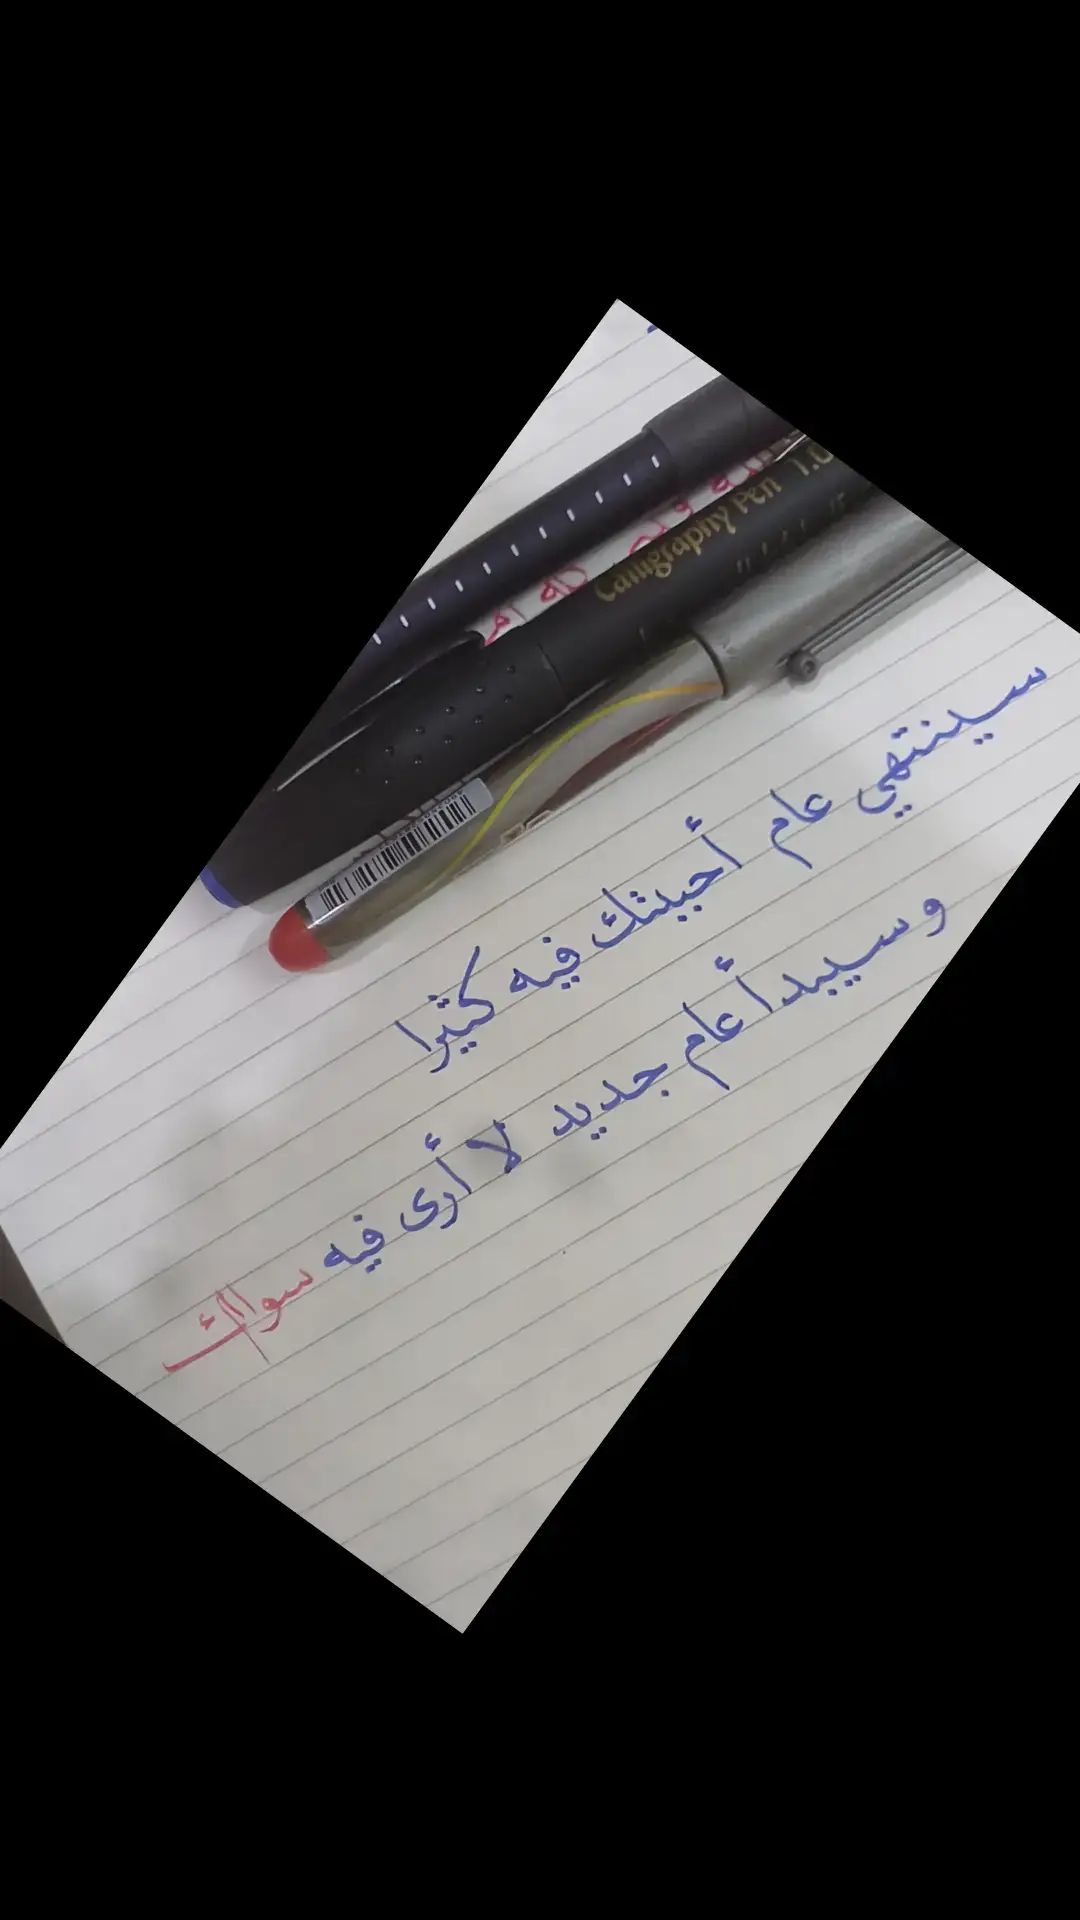 Calligraphy Pen 1.0
سينتهي عام أحببتك فيه كثيرا
وسيبدأ عام جديد لا أرى فيه سواك